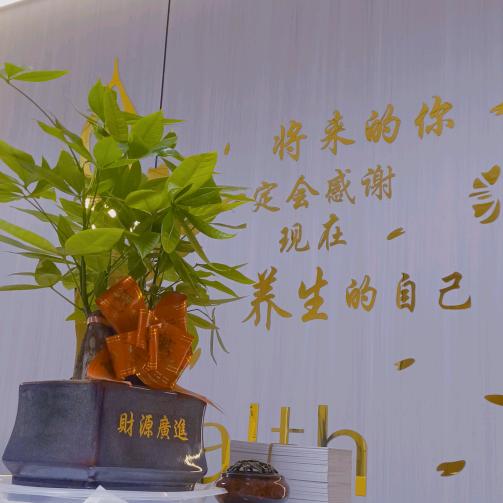 将来的你
定会感谢
现在
养生的自己
財源廣進
alth